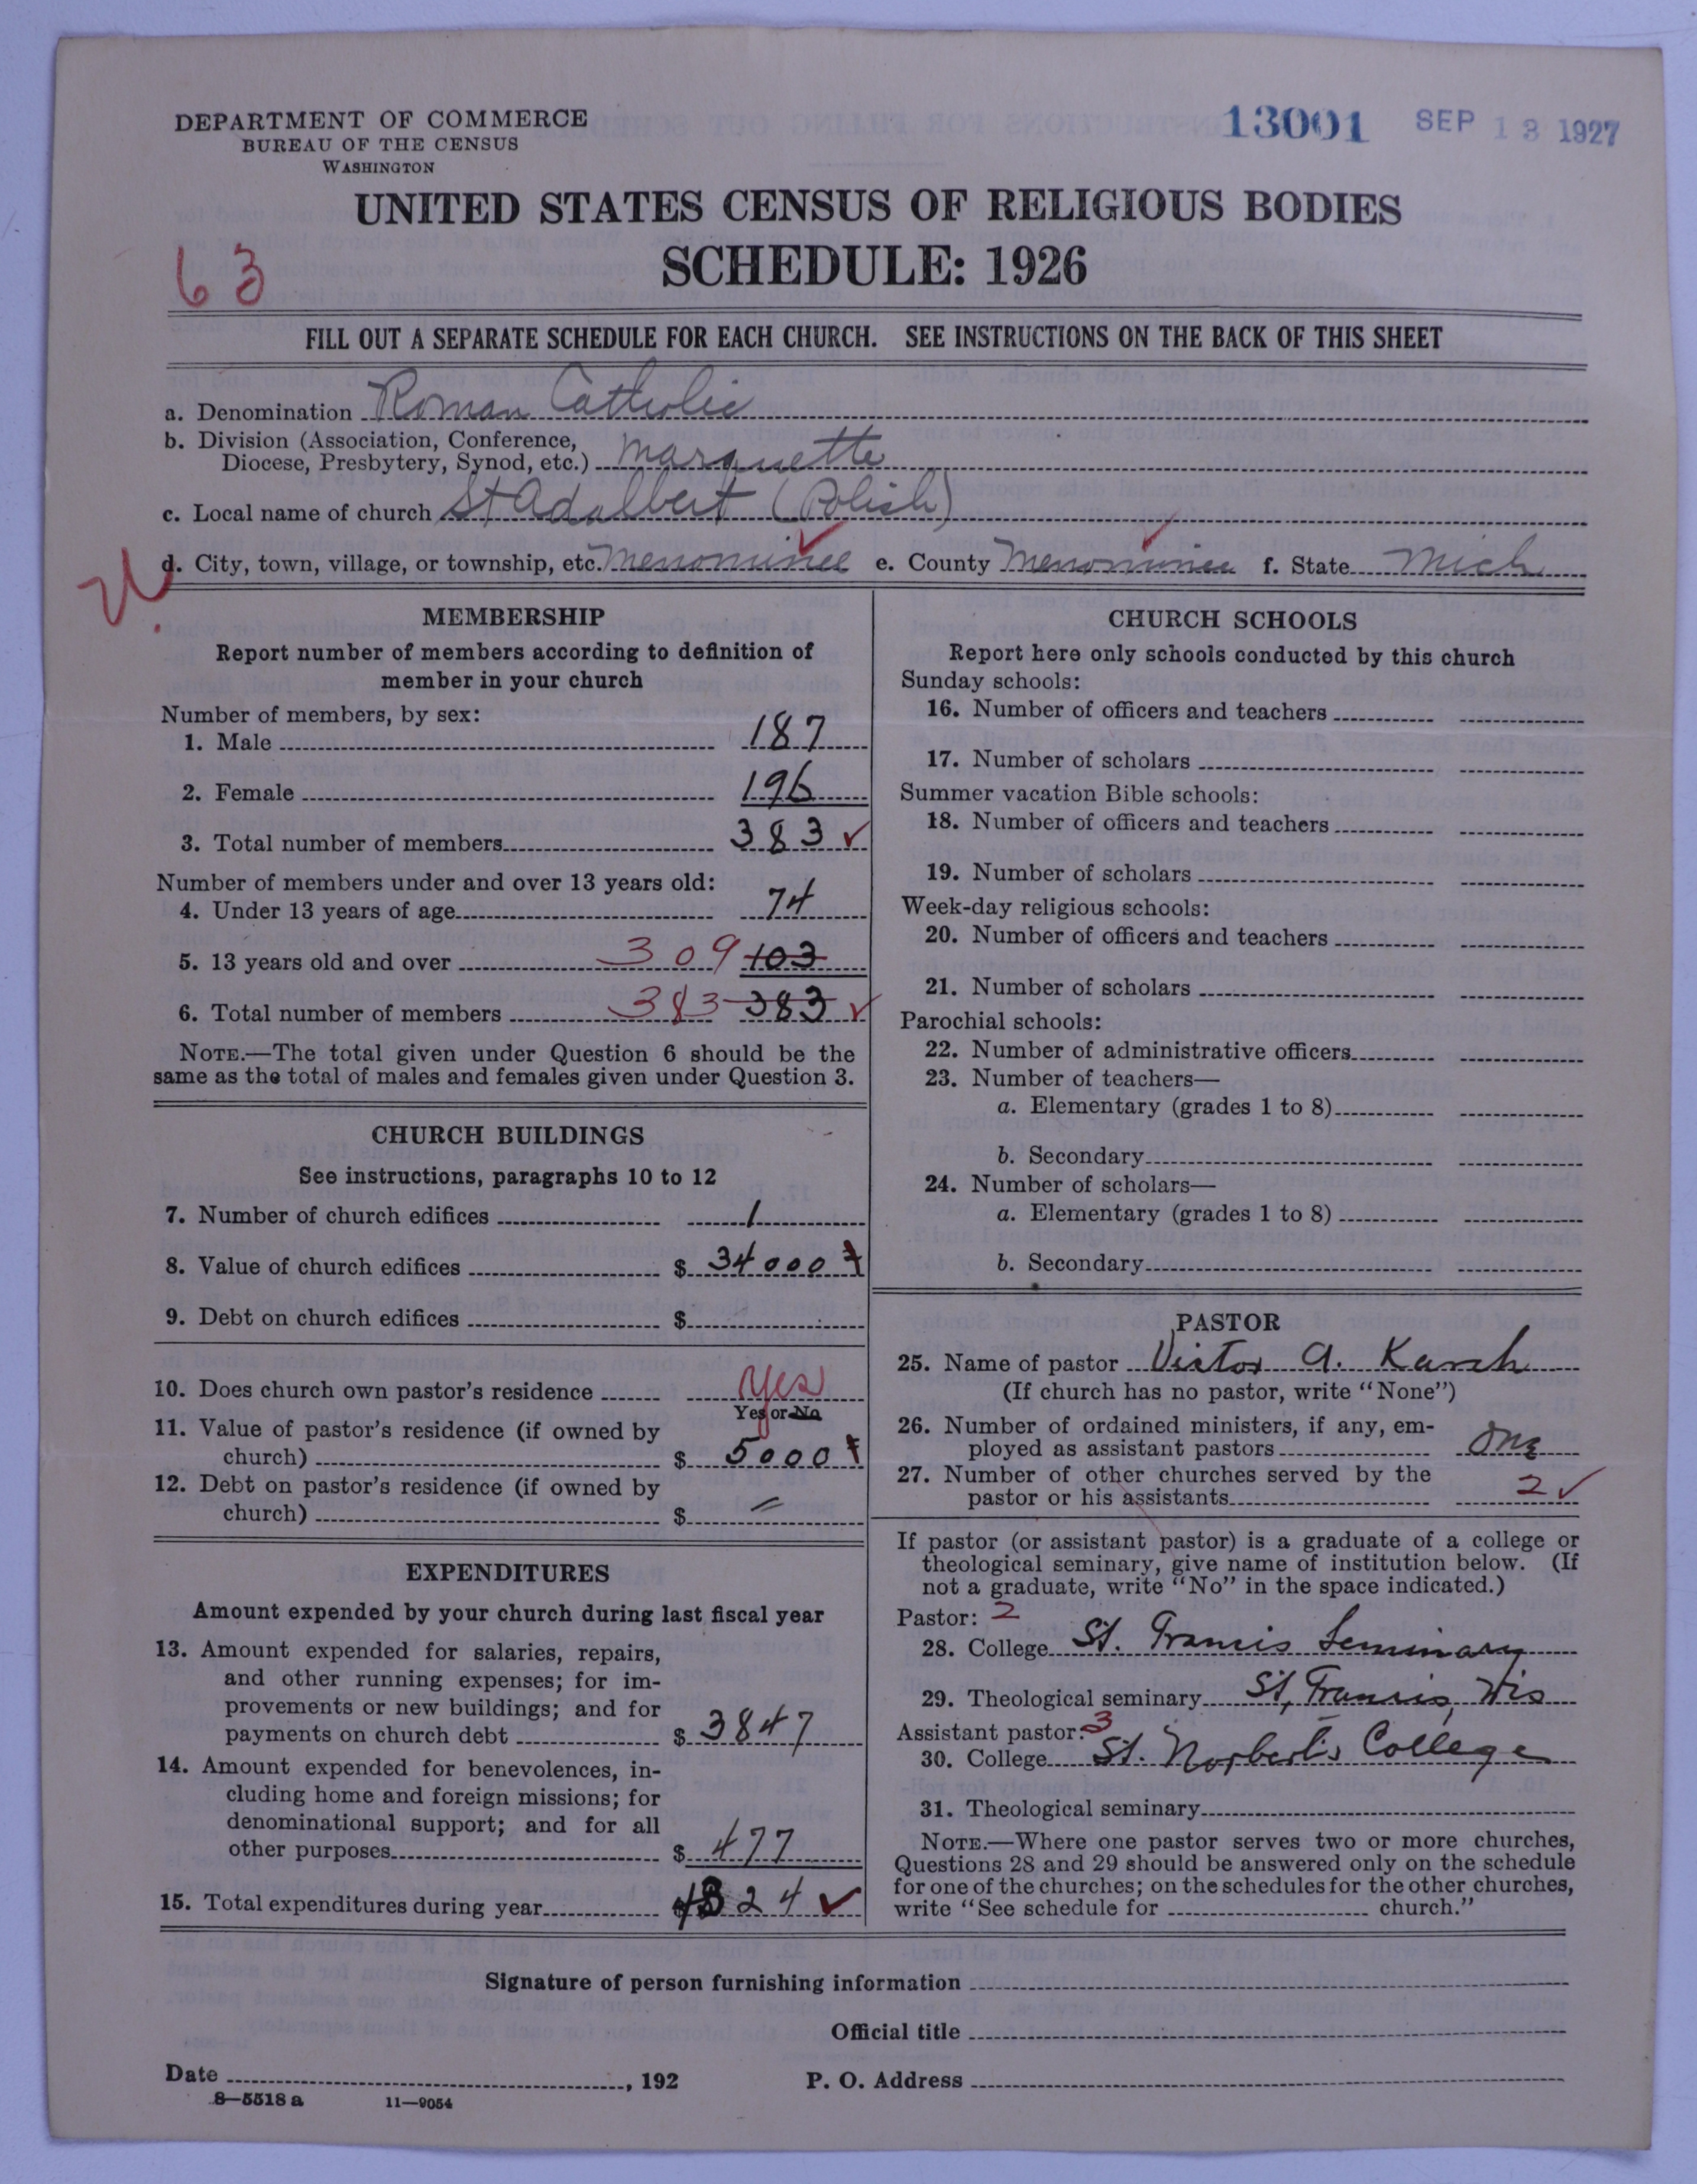 DEPARTMENT OF COMMERCE
BUREAU OF THE CENSUS
WASHINGTON
13001 SEP 13 1927
UNITED STATES CENSUS OF RELIGIOUS BODIES
SCHEDULE: 1926
63
FILL OUT A SEPARATE SCHEDULE FOR EACH CHURCH. SEE INSTRUCTIONS ON THE BACK OF THIS SHEET
a. Denomination Roman Catholic
b. Division (Association, Conference,
Diocese, Presbytery, Synod, etc.) Marquette
c. Local name of church St Adalbert (Polish)
d. City, town, village, or township, etc. Menominee e. County Menominee f. State Mich
MEMBERSHIP
Report number of members according to definition of
member in your church
Number of members, by sex:
1. Male 187
2. Female 196
3. Total number of members 383 ✓
Number of members under and over 13 years old:
4. Under 13 years of age 74
5. 13 years old and over 309 103
6. Total number of members 383 383 ✓
NOTE.—The total given under Question 6 should be the
same as the total of males and females given under Question 3.
CHURCH BUILDINGS
See instructions, paragraphs 10 to 12
7. Number of church edifices 1
8. Value of church edifices $ 34000
9. Debt on church edifices $
10. Does church own pastor's residence Yes
Yes or No
11. Value of pastor's residence (if owned by
church) $ 5000
12. Debt on pastor's residence (if owned by
church) $ =
EXPENDITURES
Amount expended by your church during last fiscal year
13. Amount expended for salaries, repairs,
and other running expenses; for im-
provements or new buildings; and for
payments on church debt $ 3847
14. Amount expended for benevolences, in-
cluding home and foreign missions; for
denominational support; and for all
other purposes $ 477
15. Total expenditures during year 4324 ✓
CHURCH SCHOOLS
Report here only schools conducted by this church
Sunday schools:
16. Number of officers and teachers
17. Number of scholars
Summer vacation Bible schools:
18. Number of officers and teachers
19. Number of scholars
Week-day religious schools:
20. Number of officers and teachers
21. Number of scholars
Parochial schools:
22. Number of administrative officers
23. Number of teachers—
a. Elementary (grades 1 to 8)
b. Secondary
24. Number of scholars—
a. Elementary (grades 1 to 8)
b. Secondary
PASTOR
25. Name of pastor Victor A. Karch
(If church has no pastor, write "None")
26. Number of ordained ministers, if any, em-
ployed as assistant pastors One
27. Number of other churches served by the
pastor or his assistants 2 ✓
If pastor (or assistant pastor) is a graduate of a college or
theological seminary, give name of institution below. (If
not a graduate, write "No" in the space indicated.)
Pastor: 2
28. College St. Francis Seminary
29. Theological seminary St, Francis, Wis
Assistant pastor: 3
30. College St. Norbert's College
31. Theological seminary
NOTE.—Where one pastor serves two or more churches,
Questions 28 and 29 should be answered only on the schedule
for one of the churches; on the schedules for the other churches,
write "See schedule for church."
Signature of person furnishing information
Official title
Date , 192 P. O. Address
8—5518 a 11—9054